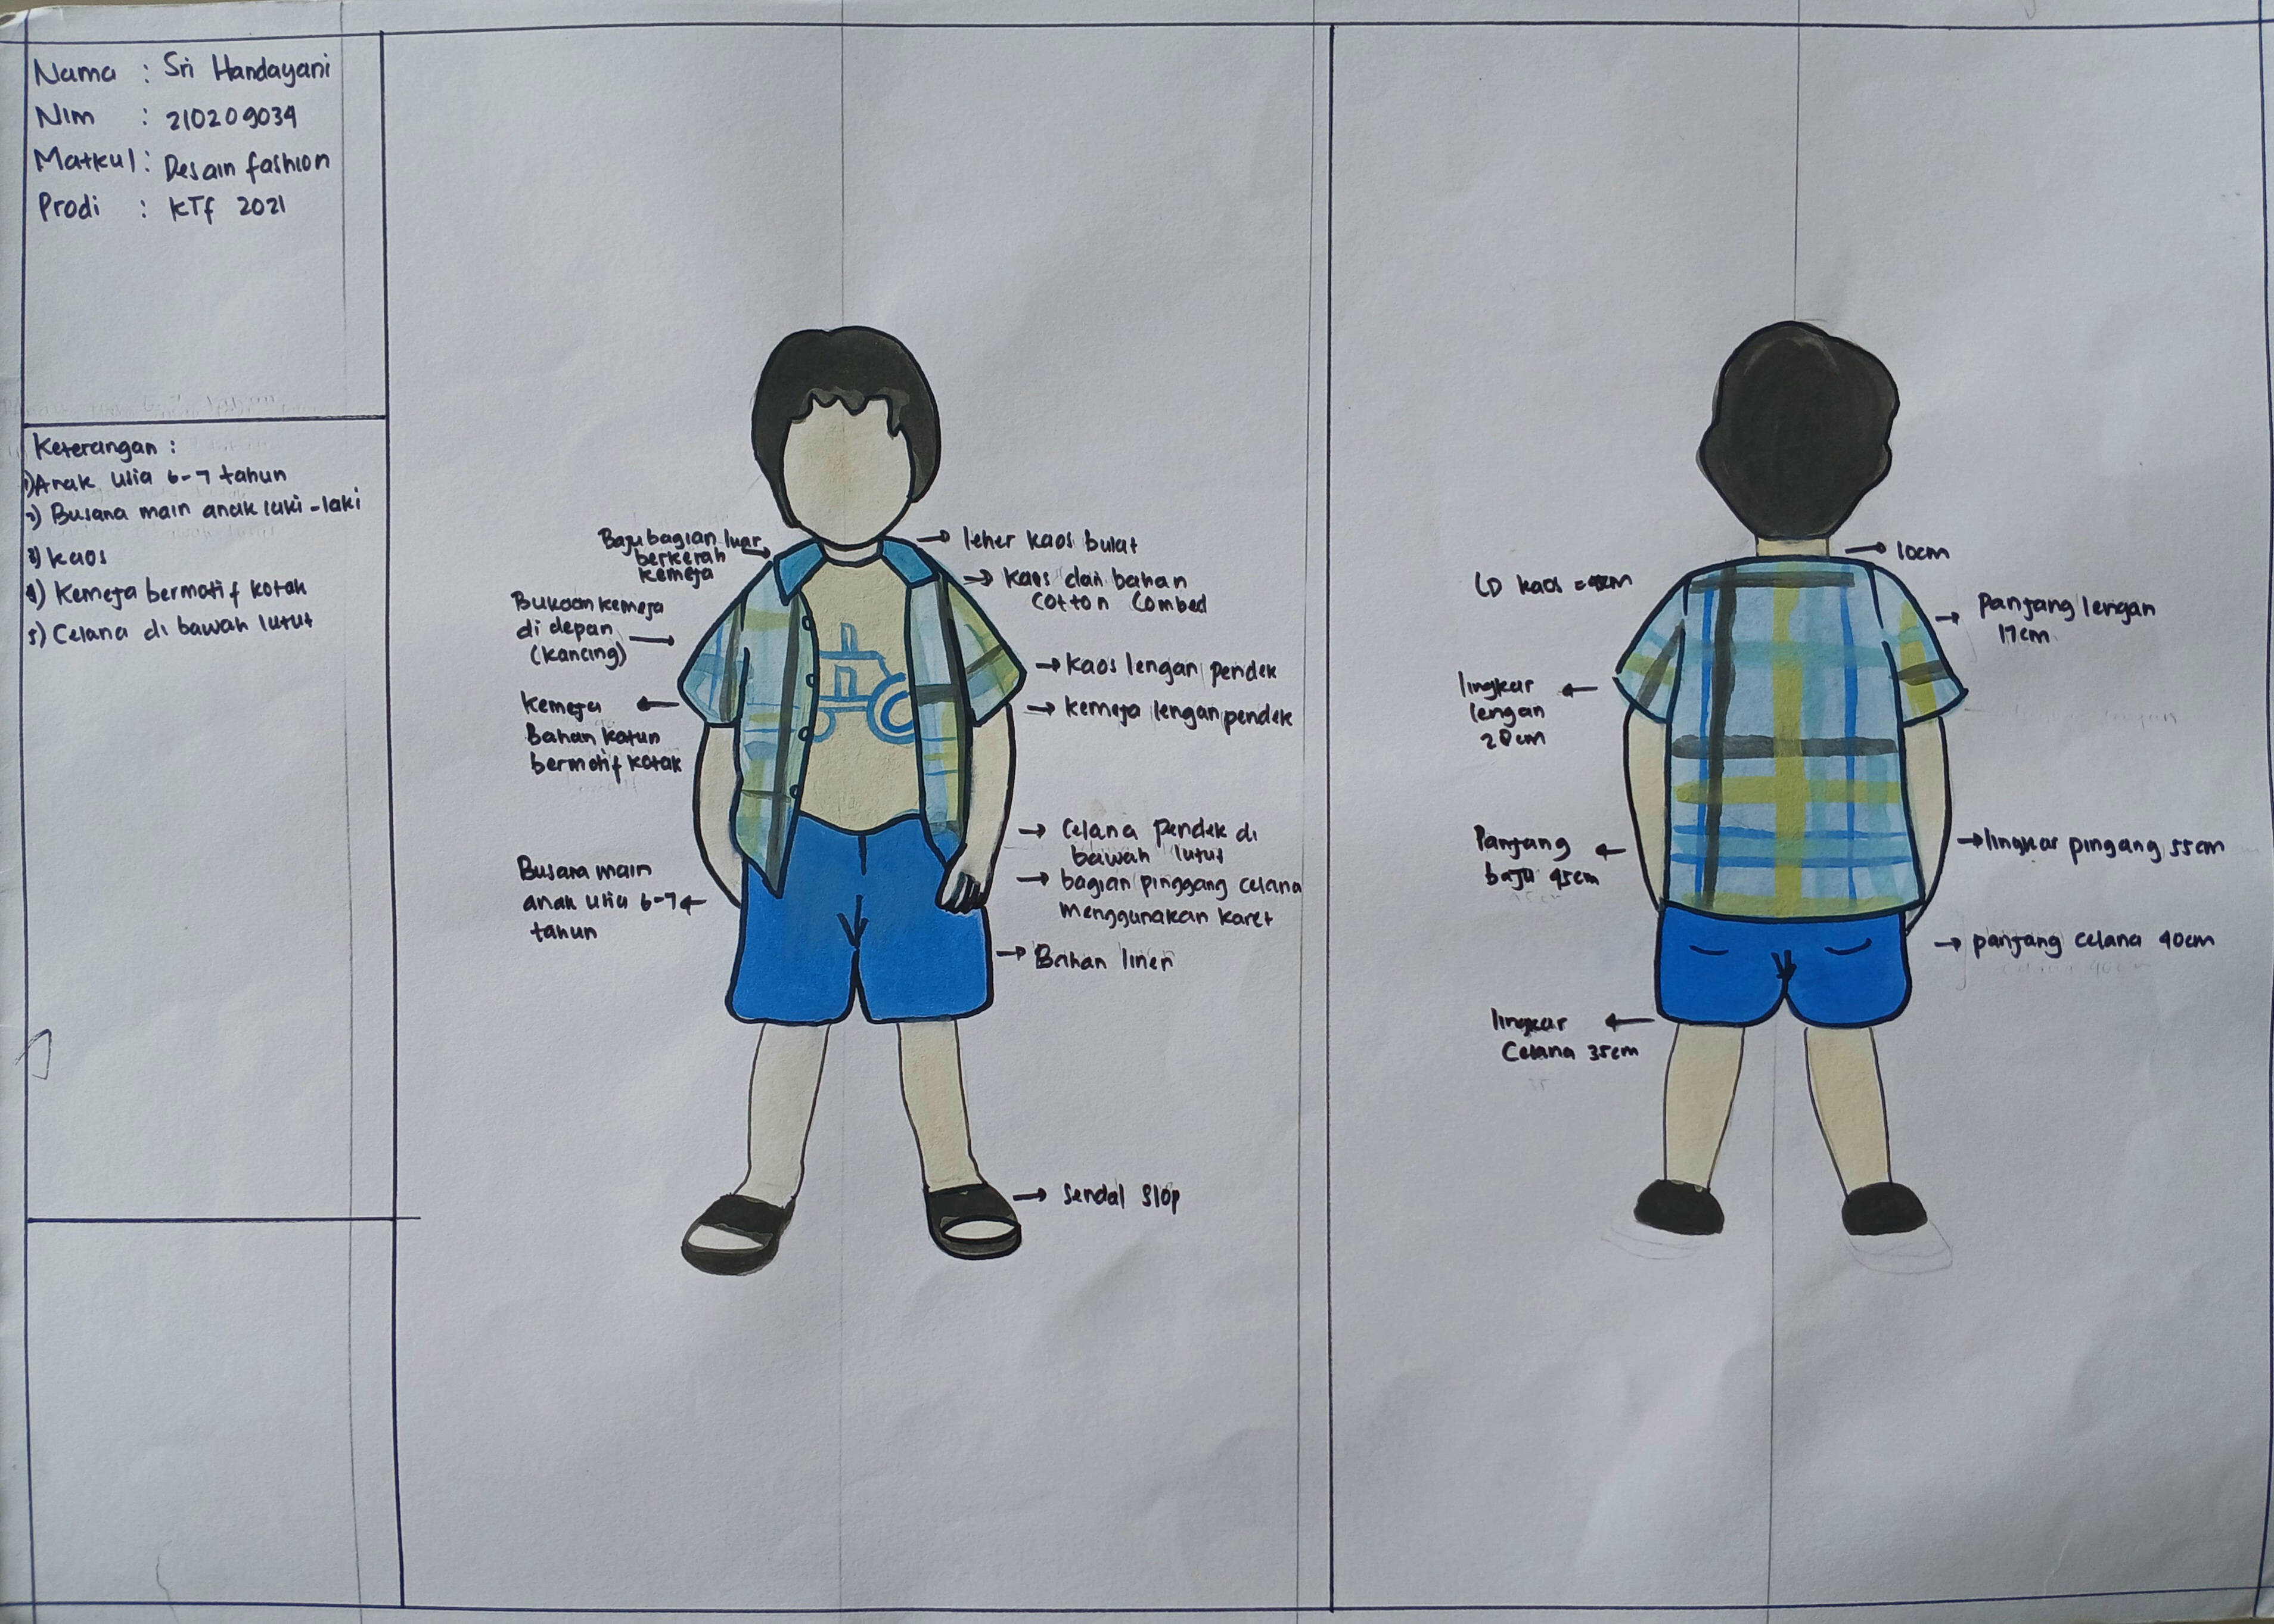 Nama : Sri Handayani
Nim : 210209034
Matkul : Desain fashion
Prodi : KTf 2021
Keterangan :
1) Anak usia 6-7 tahun
2) Busana main anak laki-laki
3) kaos
4) Kemeja bermotif kotak
5) Celana di bawah lutut
Baju bagian luar
berkerah
kemeja
Bukaan kemeja
di depan
(kancing)
kemeja
Bahan katun
bermotif kotak
Busana main
anak usia 6-7
tahun
leher kaos bulat
kaos dari bahan
Cotton Combed
kaos lengan pendek
kemeja lengan pendek
Celana pendek di
bawah lutut
bagian pinggang celana
menggunakan karet
Bahan linen
Sendal Slop
LD kaos =
lingkar
lengan
20cm
Panjang
baju 45cm
lingkar
Celana 35cm
10cm
Panjang lengan
17cm
lingkar pingang 55cm
panjang celana 40cm